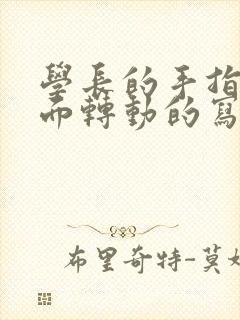 學長的手指
而轉動的寫
布里奇特-莫